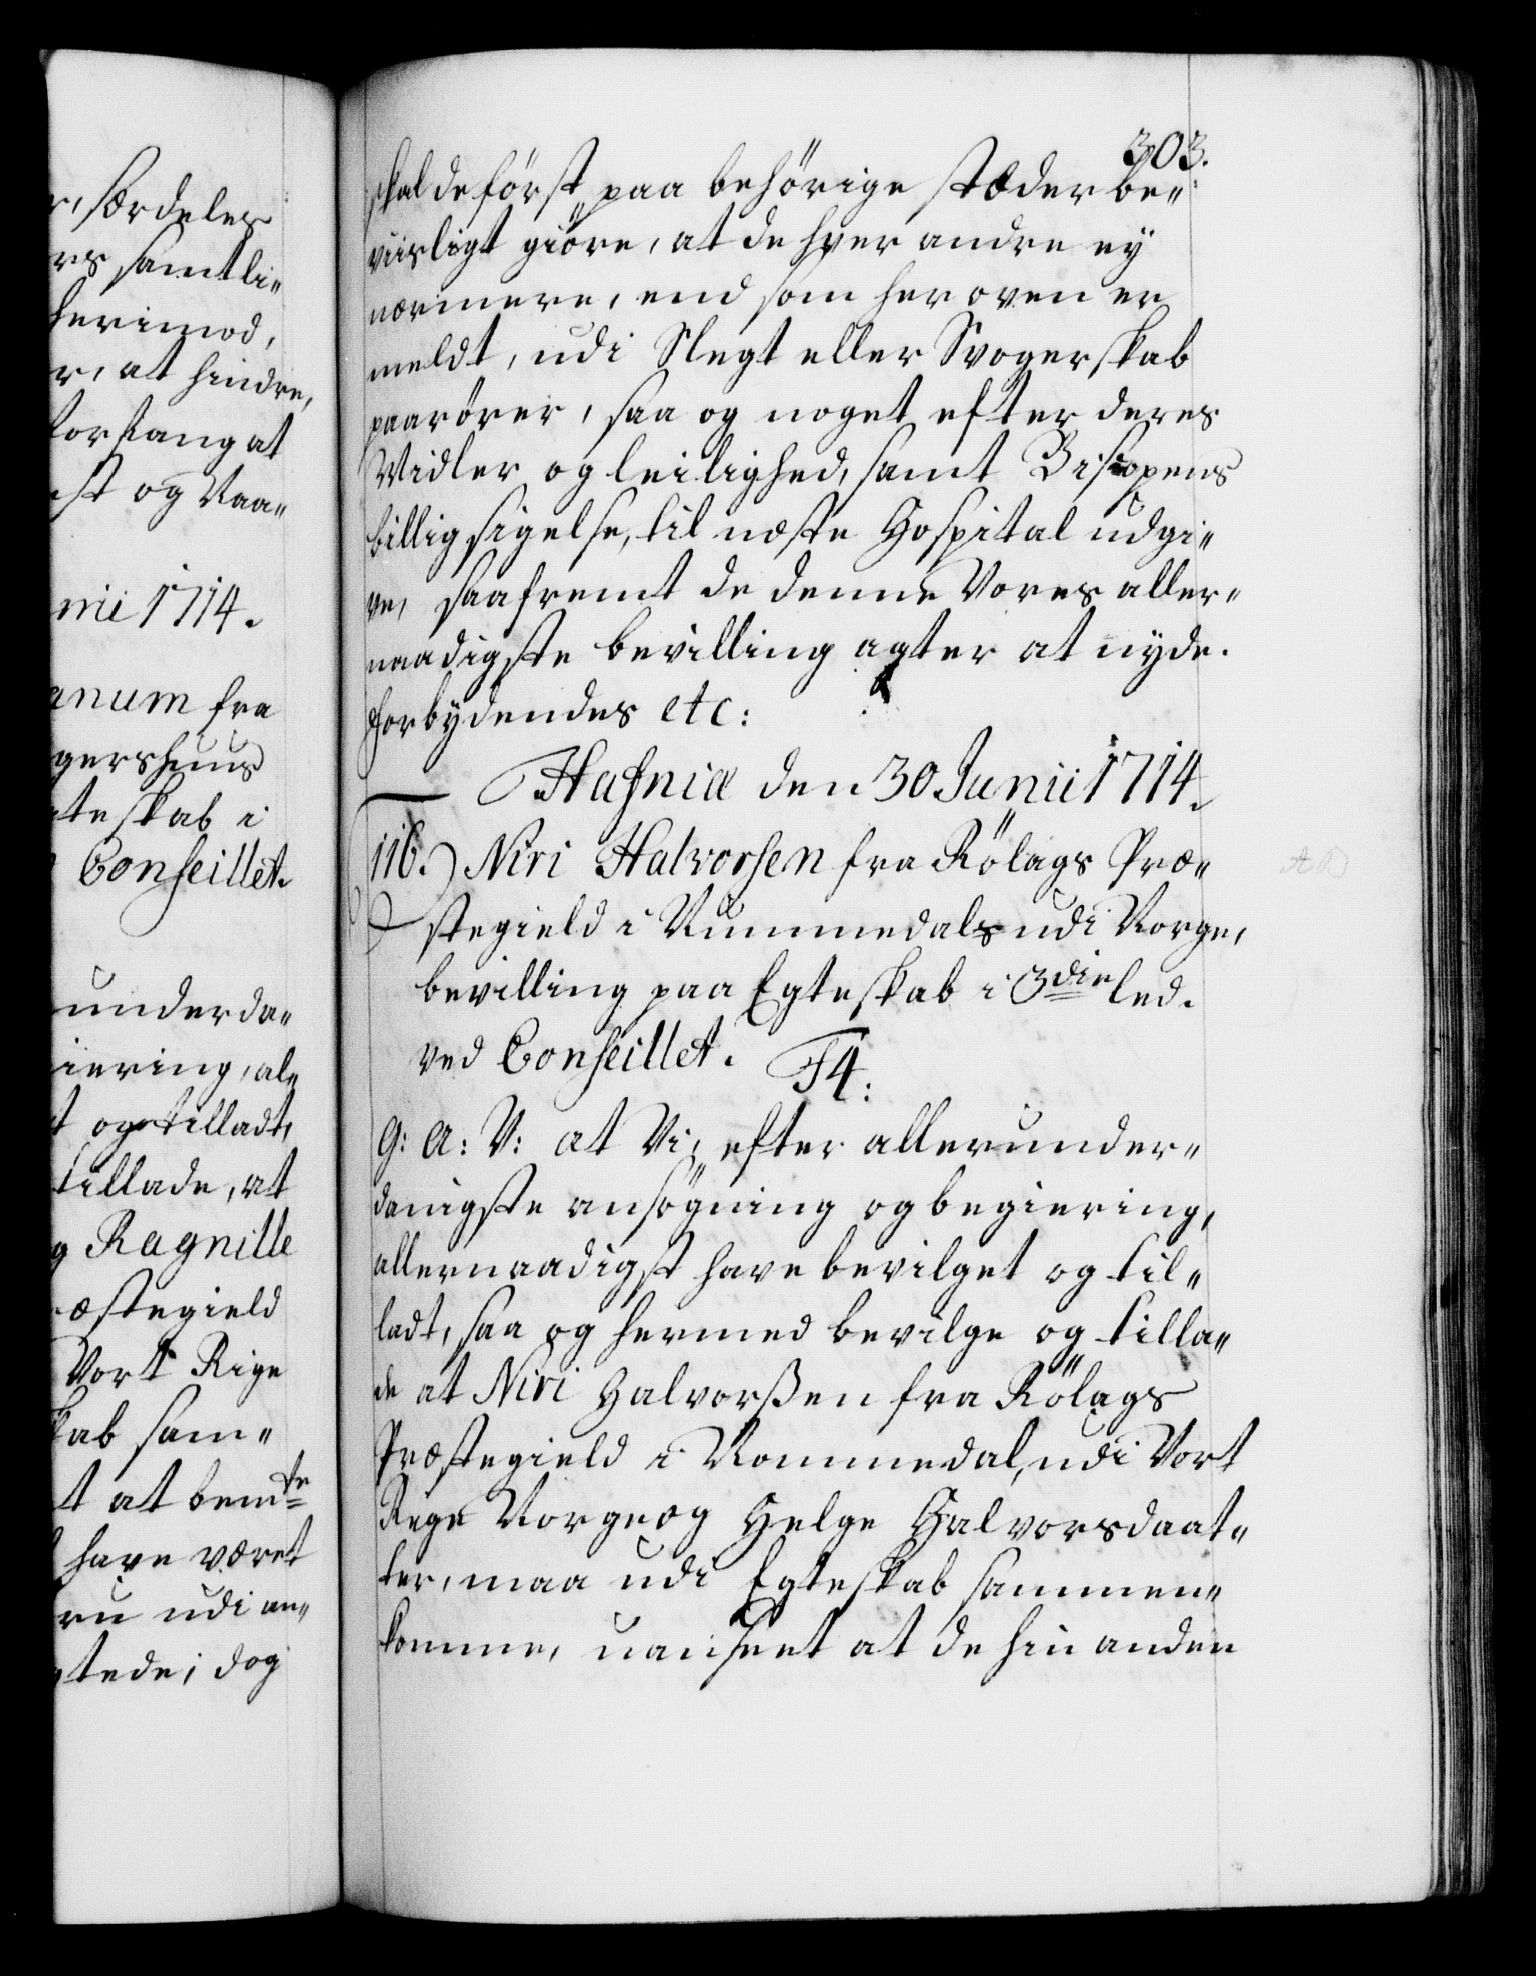 r, særdeles
rs samtli„
herimod,
r, at hindre,
forfang at
est og Raa„
nii 1714.
anum fra
gershuus
teskab i
Conseillet.
underda„
iering, al„
t og tilladt,
tillade, at
g Ragnille
æstegield
Vort Rige
kab sam„
t at bemte
have været
ru udi an„
gtede; dog
303.
skal de först, paa behörige stæder be„
viisligt giöre, at de hver andre ey
nærmere, end som her oven er
meldt, udi Slegt eller Svogerskab
paarörer, saa og noget efter deres
Midler og leilighed, samt Biscopens
billig sigelse, til næste Hospital udgi„
ve, saafremt de denne Vores aller„
naadigste bevilling agter at nyde.
forbydendes etc:
Hafniæ den 30 Junii 1714.
116.) Niri Halvorsen fra Rölags Præ„
stegield i Nummedals udi Norge,
bevilling paa Egteskab i 3die led.
ved Conseillet. F4:
G: A: V: at Vi, efter allerunder„
danigste ansögning og begiering,
allernaadigst have bevilget og til„
ladt, saa og hermed bevilge og tilla„
de at Niri Halvorßen fra Rölags
Præstegield i Nommedal, udi Vort
Rige Norge og Helge Halvorsdaat„
ter, maa udi Egteskab sammen„
komme, uanseet at de hin anden